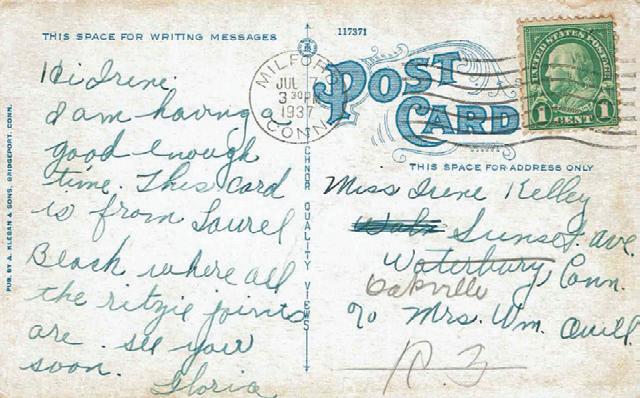 THIS SPACE FOR WRITING MESSAGES
117371
Hi Irene.
I am having a
good enough
time. This card
is from Laurel
Beach where all
the ritzie joints
are. see your
soon.
Gloria
PUB. BY A. KLEBAN & SONS, BRIDGEPORT, CONN.
C.T. AMERICAN QUALITY VIEWS
MILFORD
JUL 7
3 30 PM
1937
CONN.
POST
CARD
UNITED STATES POSTAGE
1 CENT 1
THIS SPACE FOR ADDRESS ONLY
Miss Irene Kelley
Sunset Ave.
Waterbury, Conn.
Oakville
% Mrs. Wm. Quill.
R. 3